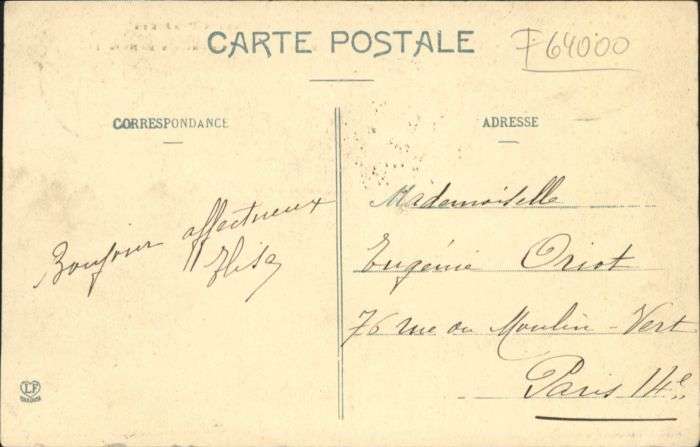 CARTE POSTALE
F64000
CORRESPONDANCE
ADRESSE
Bonjour affectueux
Elisa
Mademoiselle
Eugénie Oriot
76 rue du Moulin-Vert
Paris 14e
LF